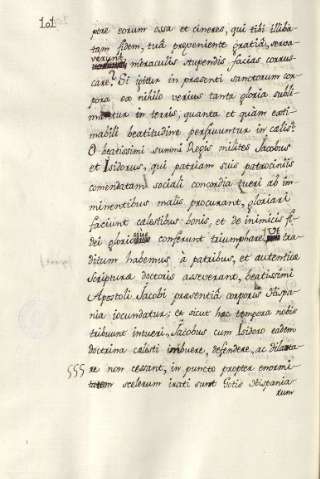 101
pore eorum ossa et cineres, qui tibi illiba
tam fidem, tuâ preveniente gratiâ, serva
verunt, miraculis stupendis facias corrus
care? Si igitur in presenti sanctorum cor
pora ex nihilo verius tanta gloria subli
mantur in terris, quanta et quàm aesti
mabili beatitudine perfruuntur in caelis?
O beatissimi summi Regis milites Jacobus
et Isidorus, qui patriam suis patrociniis
comendatam sociali concordia tueri ab im
minentibus malis procurant, gloriari
faciunt caelestibus bonis, et de inimicis fi
dei conferunt triumphare. Ut tra
ditum habemus à patribus, et autentica
scriptura doctoris asseverant, beatissimi
Apostoli Jacobi presentiâ corporis Hispa
nia iocundatur; et sicut hac tempora nobis
tribuunt intueri, Jacobus cum Isidoro eadem
doctrina caelesti imbuere, defendere, ac dilata
§§§ re non cessant, in puncto propter enormi
tatem scelerum irati sunt Gotis Hispania
rum